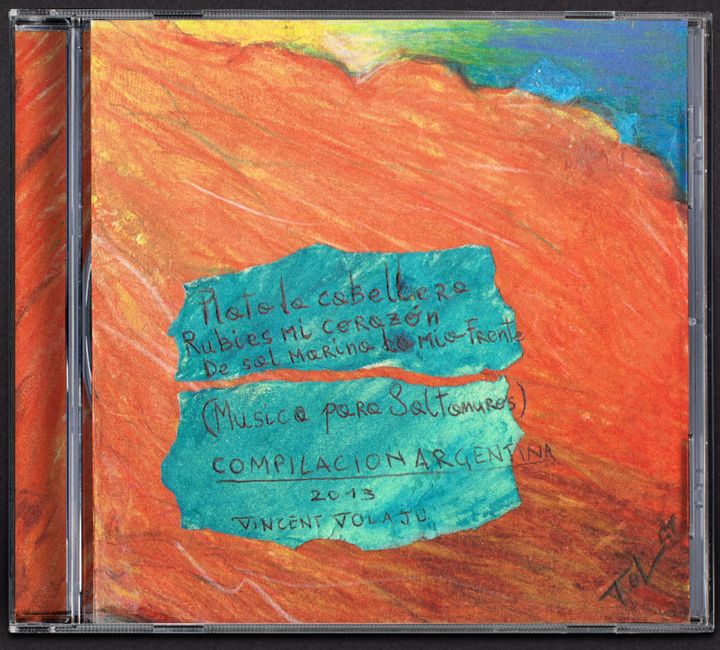 Plata la cabellera
Rubies mi corazón
De sal marina la mia Frente
(Musica para Saltamuros)
COMPILACION ARGENTINA
2013
VINCENT VOLAJU